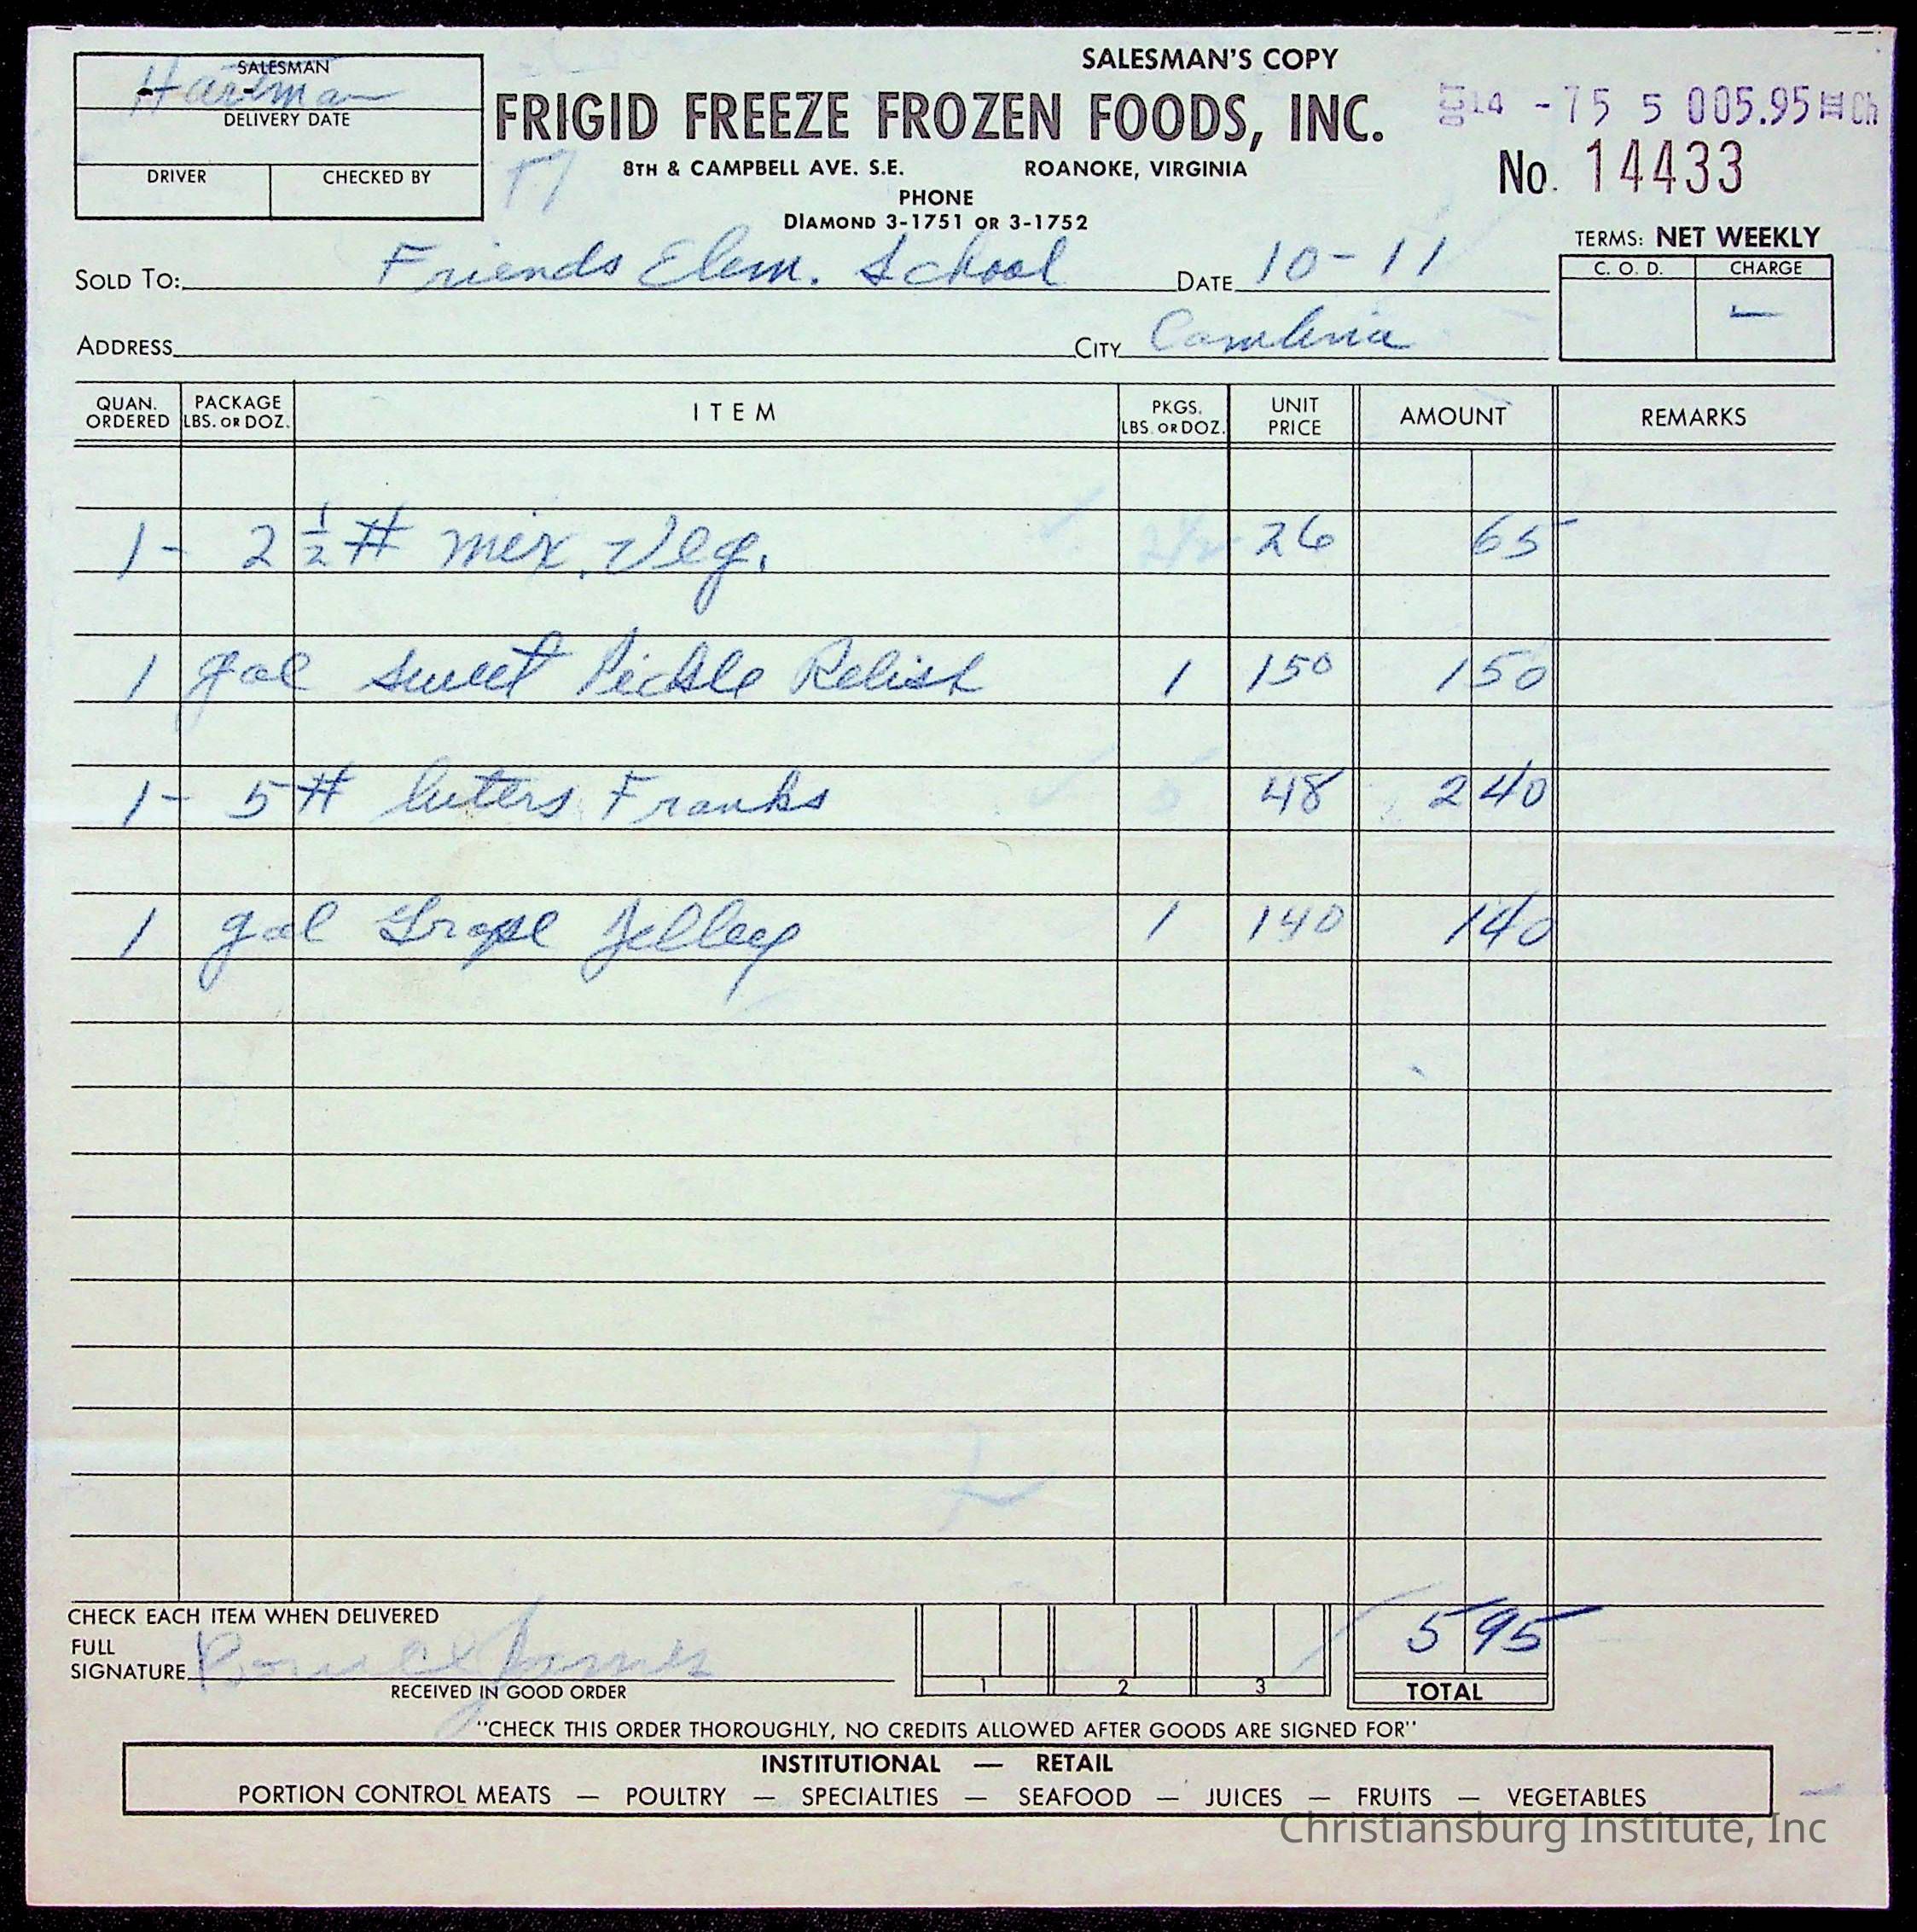 SALESMAN'S COPY
SALESMAN
Hartman
DELIVERY DATE
DRIVER CHECKED BY
FRIGID FREEZE FROZEN FOODS, INC.
8TH & CAMPBELL AVE. S.E. ROANOKE, VIRGINIA
PHONE
DIAMOND 3-1751 OR 3-1752
OCT 14 -75 5 005.95 Ch
No. 14433
TERMS: NET WEEKLY
C. O. D. CHARGE
SOLD TO: Friends Elem. School DATE 10-11
ADDRESS CITY Cambria
QUAN. ORDERED PACKAGE LBS. OR DOZ. ITEM PKGS. LBS. OR DOZ. UNIT PRICE AMOUNT REMARKS
1- 2 1/2 # mix. Veg. 2 1/2 26 65
1 gal sweet Pickle Relish 1 150 1 50
1- 5 # luters Franks 5 48 2 40
1 gal Grape Jelley 1 140 1 40
CHECK EACH ITEM WHEN DELIVERED
FULL
SIGNATURE
RECEIVED IN GOOD ORDER
1 2 3
5 95
TOTAL
"CHECK THIS ORDER THOROUGHLY, NO CREDITS ALLOWED AFTER GOODS ARE SIGNED FOR"
INSTITUTIONAL — RETAIL
PORTION CONTROL MEATS — POULTRY — SPECIALTIES — SEAFOOD — JUICES — FRUITS — VEGETABLES
Christiansburg Institute, Inc